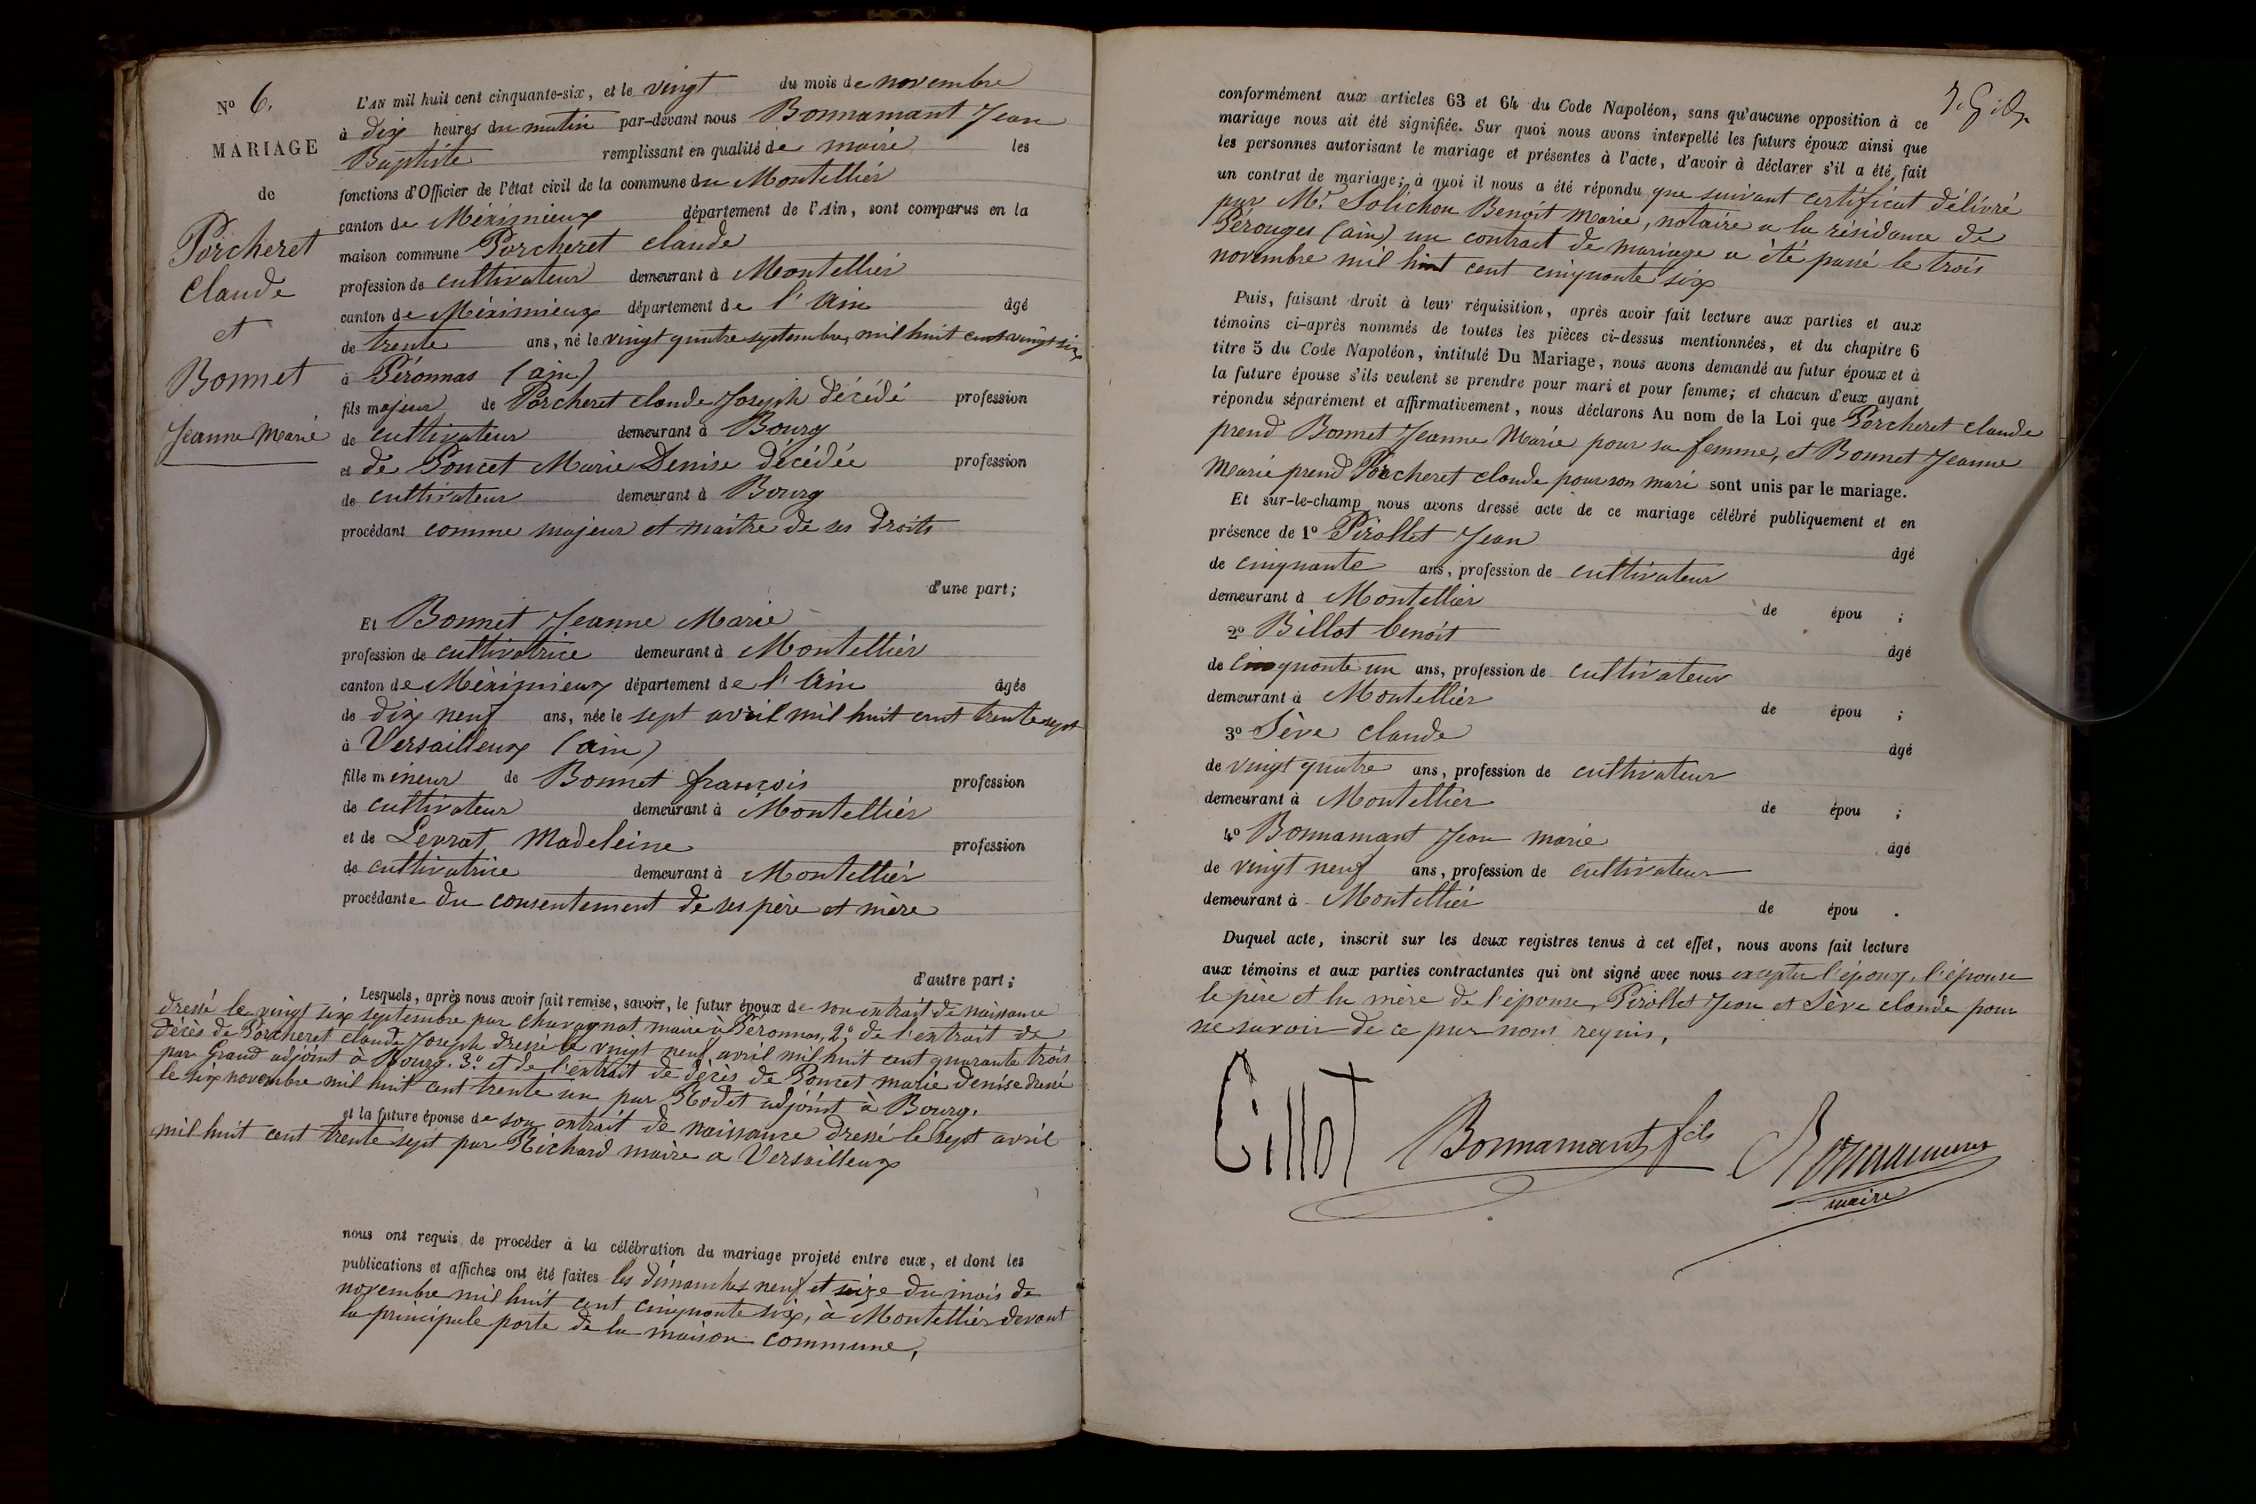 N° 6.
MARIAGE
de
Porcheret
Claude
et
Bonnet
Jeanne Marie
L'AN mil huit cent cinquante-six, et le vingt du mois de novembre
à dix heures du matin par-devant nous Bonnamant Jean
Baptiste remplissant en qualité de maire les
fonctions d'Officier de l'état civil de la commune du Montellier
canton de Méximieux département de l'Ain, sont comparus en la
maison commune Porcheret claude
profession de cultivateur demeurant à Montellier
canton de Méximieux département de l'Ain âgé
de trente ans, né le vingt quatre septembre, mil huit cent vingt six
à Péronnas (ain)
fils majeur de Porcheret claude Joseph décédé profession
de cultivateur demeurant à Bourg
et de Poncet Marie Denise décédée profession
de cultivateur demeurant à Bourg
procédant comme majeur et maître de ses droits
d'une part;
Et Bonnet Jeanne Marie
profession de cultivatrice demeurant à Montellier
canton de Méximieux département de l'Ain âgée
de dix neuf ans, née le sept avril mil huit cent trente sept
à Versailleux (ain)
fille mineur de Bonnet françois profession
de cultivateur demeurant à Montellier
et de Levrat Madeleine profession
de cultivatrice demeurant à Montellier
procédante du consentement de ses père et mère
d'autre part;
Lesquels, après nous avoir fait remise, savoir, le futur époux de son extrait de naissance
dressé le vingt six septembre par Chavagnat maire à Péronnas, 2° de l'extrait de
décès de Porcheret claude Joseph dressé le vingt neuf avril mil huit cent quarante trois
par Grand adjoint à Bourg. 3° et de l'extrait de décès de Poncet marie denise dressé
le six novembre mil huit cent trente un par Rodet adjoint à Bourg.
et la future épouse de son extrait de naissance dressé le sept avril
mil huit cent trente sept par Richard maire a Versailleux
nous ont requis de procéder à la célébration du mariage projeté entre eux, et dont les
publications et affiches ont été faites les dimanches neuf et seize du mois de
novembre mil huit cent cinquante six, à Montellier devant
la principale porte de la maison commune,
conformément aux articles 63 et 64 du Code Napoléon, sans qu'aucune opposition à ce
mariage nous ait été signifiée. Sur quoi nous avons interpellé les futurs époux ainsi que
les personnes autorisant le mariage et présentes à l'acte, d'avoir à déclarer s'il a été fait
un contrat de mariage; à quoi il nous a été répondu que suivant certificat délivré
par Mr. Solichon Benoit Marie, notaire a la résidance de
Pérouges (ain) un contract de mariage a été passé le trois
novembre mil huit cent cinquante six
Puis, faisant droit à leur réquisition, après avoir fait lecture aux parties et aux
témoins ci-après nommés de toutes les pièces ci-dessus mentionnées, et du chapitre 6
titre 5 du Code Napoléon, intitulé Du Mariage, nous avons demandé au futur époux et à
la future épouse s'ils veulent se prendre pour mari et pour femme; et chacun d'eux ayant
répondu séparément et affirmativement, nous déclarons Au nom de la Loi que Porcheret claude
prend Bonnet Jeanne Marie pour sa femme, et Bonnet Jeanne
Marie prend Porcheret claude pour son mari sont unis par le mariage.
Et sur-le-champ nous avons dressé acte de ce mariage célébré publiquement et en
présence de 1° Pirollet Jean âgé
de cinquante ans, profession de cultivateur
demeurant à Montellier de épou ;
2° Billot benoit âgé
de cinquante un ans, profession de cultivateur
demeurant à Montellier de épou ;
3° Sève claude âgé
de vingt quatre ans, profession de cultivateur
demeurant à Montellier de épou ;
4° Bonnamant Jean marie âgé
de vingt neuf ans, profession de cultivateur
demeurant à Montellier de épou .
Duquel acte, inscrit sur les deux registres tenus à cet effet, nous avons fait lecture
aux témoins et aux parties contractantes qui ont signé avec nous excepter l'époux, l'épouse
le père et la mère de l'épouse, Pirollet Jean et Sève claude pour
ne savoir de ce par nous requis,
Billot Bonnamant fils Bonnamant
maire